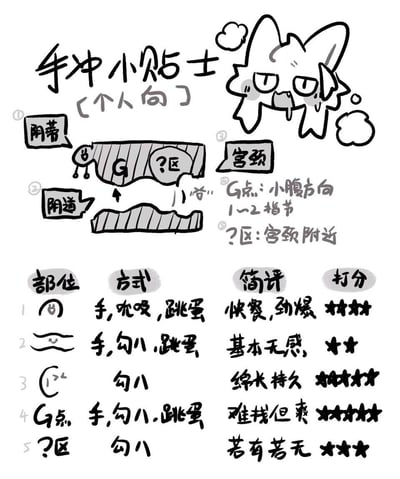 手冲小贴士
[个人向]
① 阴蒂
G ?区
③ 宫颈
② 阴道
④ G点：小腹方向
1~2指节
⑤ ?区：宫颈附近
部位 方式 简评 打分
1 手,吮吸,跳蛋 快餐,劲爆 ★★★★
2 手,勾八.跳蛋 基本无感 ★★
3 勾八 绵长持久 ★★★★★
4 G点 手,勾八.跳蛋 难找但爽 ★★★★★
5 ?区 勾八 若有若无 ★★★